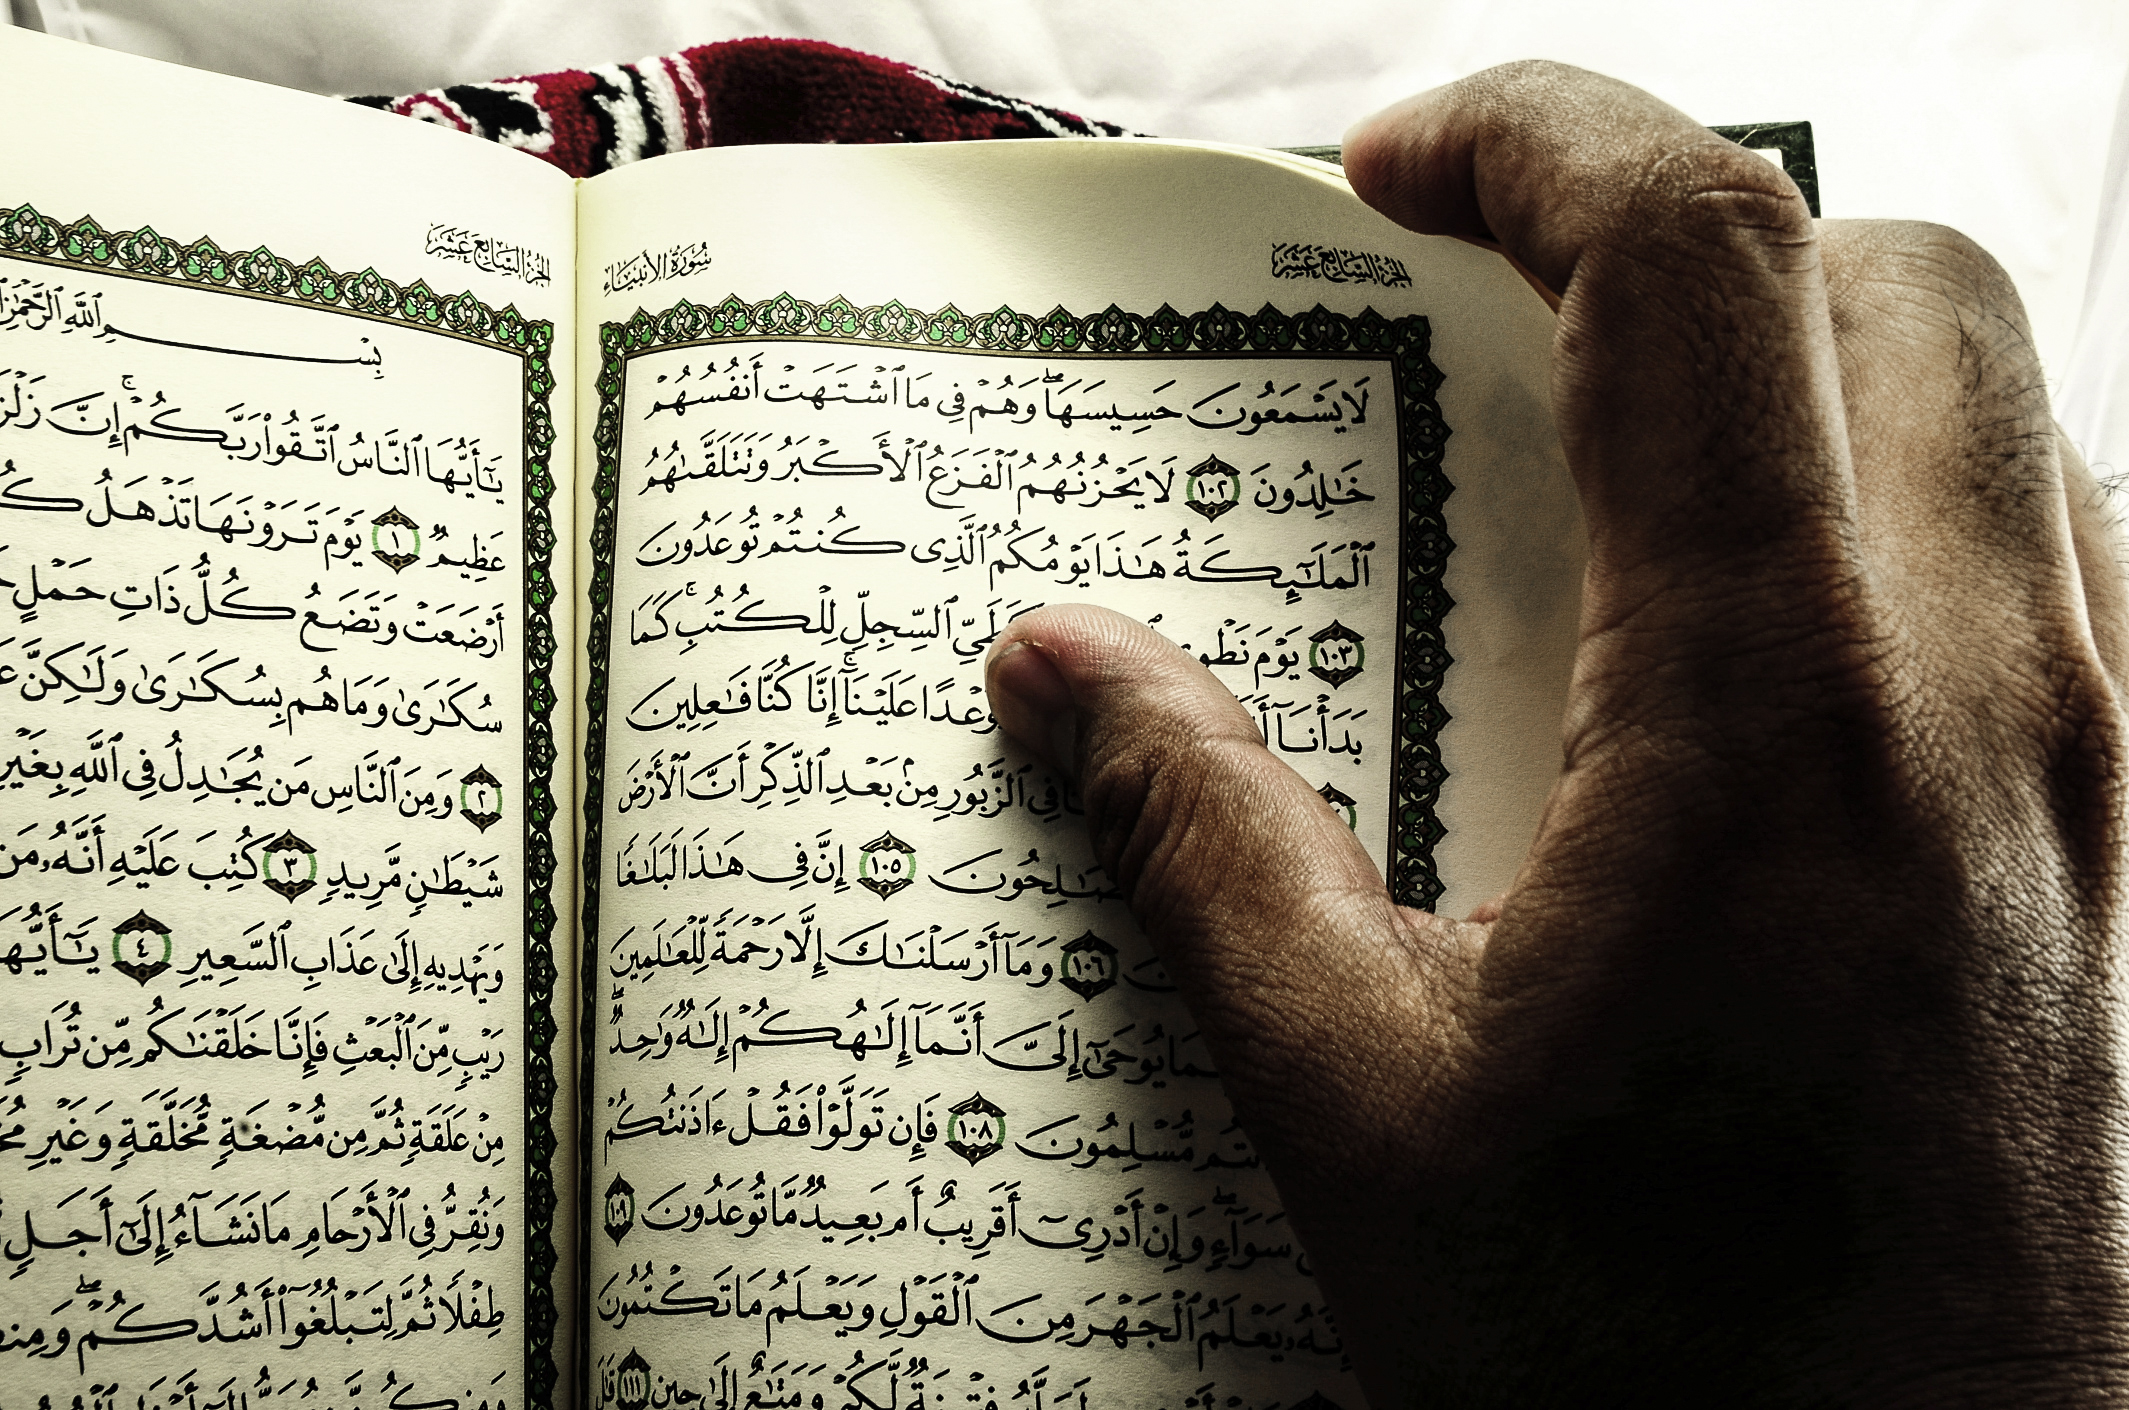 سُورَةُ الأَنبِيَاءِ الجُزْءُ السَّابِعَ عَشَرَ
لَا يَسْمَعُونَ حَسِيسَهَا ۖ وَهُمْ فِى مَا ٱشْتَهَتْ أَنفُسُهُمْ
خَـٰلِدُونَ ١٠٢ لَا يَحْزُنُهُمُ ٱلْفَزَعُ ٱلْأَكْبَرُ وَتَتَلَقَّىٰهُمُ
ٱلْمَلَـٰٓئِكَةُ هَـٰذَا يَوْمُكُمُ ٱلَّذِى كُنتُمْ تُوعَدُونَ
١٠٣ يَوْمَ نَطْوِى كَطَىِّ ٱلسِّجِلِّ لِلْكُتُبِ ۚ كَمَا
بَدَأْنَآ وَعْدًا عَلَيْنَآ ۚ إِنَّا كُنَّا فَـٰعِلِينَ
فِى ٱلزَّبُورِ مِنۢ بَعْدِ ٱلذِّكْرِ أَنَّ ٱلْأَرْضَ
١٠٥ إِنَّ فِى هَـٰذَا لَبَلَـٰغًا
١٠٦ وَمَآ أَرْسَلْنَـٰكَ إِلَّا رَحْمَةً لِّلْعَـٰلَمِينَ
يُوحَىٰٓ إِلَىَّ أَنَّمَآ إِلَـٰهُكُمْ إِلَـٰهٌ وَٰحِدٌ ۖ
مُّسْلِمُونَ ١٠٨ فَإِن تَوَلَّوْا۟ فَقُلْ ءَاذَنتُكُمْ
سَوَآءٍ ۖ وَإِنْ أَدْرِىٓ أَقَرِيبٌ أَم بَعِيدٌ مَّا تُوعَدُونَ ١٠٩
يَعْلَمُ ٱلْجَهْرَ مِنَ ٱلْقَوْلِ وَيَعْلَمُ مَا تَكْتُمُونَ
فِتْنَةٌ لَّكُمْ وَمَتَـٰعٌ إِلَىٰ حِينٍ ١١١ قَـٰلَ
الجُزْءُ السَّابِعَ عَشَرَ
بِسْمِ ٱللَّهِ ٱلرَّحْمَـٰنِ
يَـٰٓأَيُّهَا ٱلنَّاسُ ٱتَّقُوا۟ رَبَّكُمْ ۚ إِنَّ
عَظِيمٌ ١ يَوْمَ تَرَوْنَهَا تَذْهَلُ
أَرْضَعَتْ وَتَضَعُ كُلُّ ذَاتِ حَمْلٍ
سُكَـٰرَىٰ وَمَا هُم بِسُكَـٰرَىٰ وَلَـٰكِنَّ
٢ وَمِنَ ٱلنَّاسِ مَن يُجَـٰدِلُ فِى ٱللَّهِ بِغَيْرِ
شَيْطَـٰنٍ مَّرِيدٍ ٣ كُتِبَ عَلَيْهِ أَنَّهُۥ مَن
وَيَهْدِيهِ إِلَىٰ عَذَابِ ٱلسَّعِيرِ ٤ يَـٰٓأَيُّهَا
رَيْبٍ مِّنَ ٱلْبَعْثِ فَإِنَّا خَلَقْنَـٰكُم مِّن تُرَابٍ
مِنْ عَلَقَةٍ ثُمَّ مِن مُّضْغَةٍ مُّخَلَّقَةٍ وَغَيْرِ
وَنُقِرُّ فِى ٱلْأَرْحَامِ مَا نَشَآءُ إِلَىٰٓ أَجَلٍ
طِفْلًا ثُمَّ لِتَبْلُغُوٓا۟ أَشُدَّكُمْ ۖ